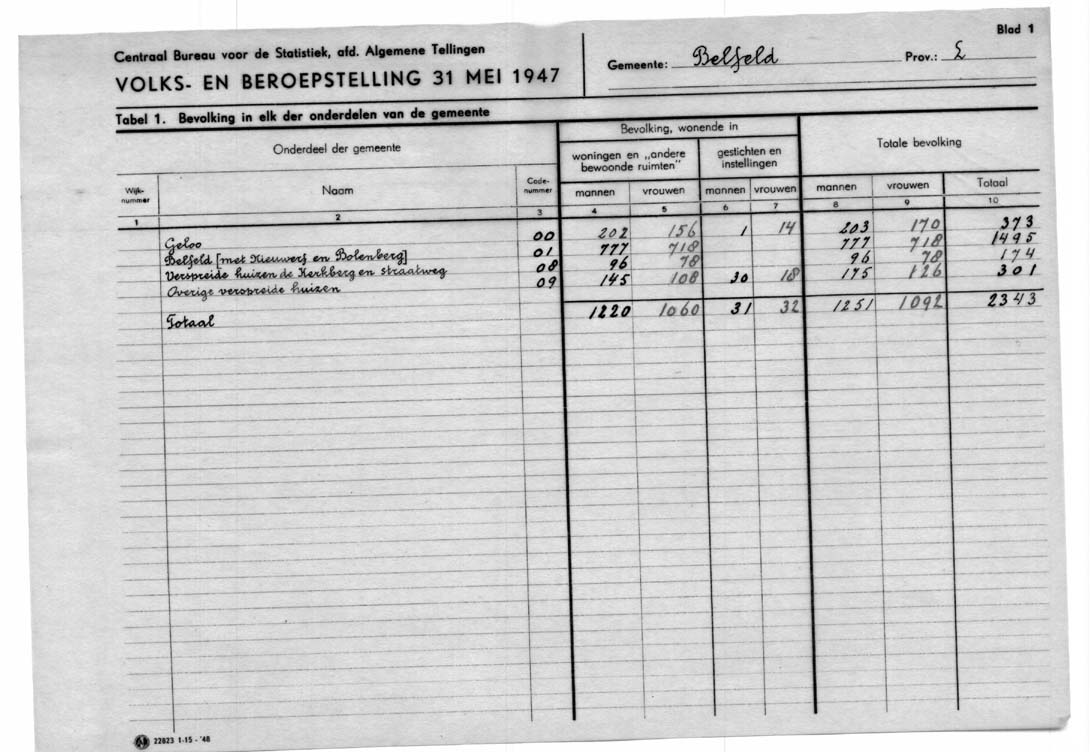 Blad 1
Centraal Bureau voor de Statistiek, afd. Algemene Tellingen
VOLKS- EN BEROEPSTELLING 31 MEI 1947
Gemeente: Belfeld Prov.: L
Tabel 1. Bevolking in elk der onderdelen van de gemeente
Onderdeel der gemeente
Bevolking, wonende in
Totale bevolking
woningen en „andere bewoonde ruimten"
gestichten en instellingen
Wijk-nummer Naam Code-nummer mannen vrouwen mannen vrouwen mannen vrouwen Totaal
1 2 3 4 5 6 7 8 9 10
Geloo 00 202 156 1 14 203 170 373
Belfeld [met Nieuwerf en Bolenberg] 01 777 718 777 718 1495
Verspreide huizen de Kerkberg en straatweg 08 96 78 96 78 174
Overige verspreide huizen 09 145 108 30 18 175 126 301
Totaal 1220 1060 31 32 1251 1092 2343
22823 1-15 - '48